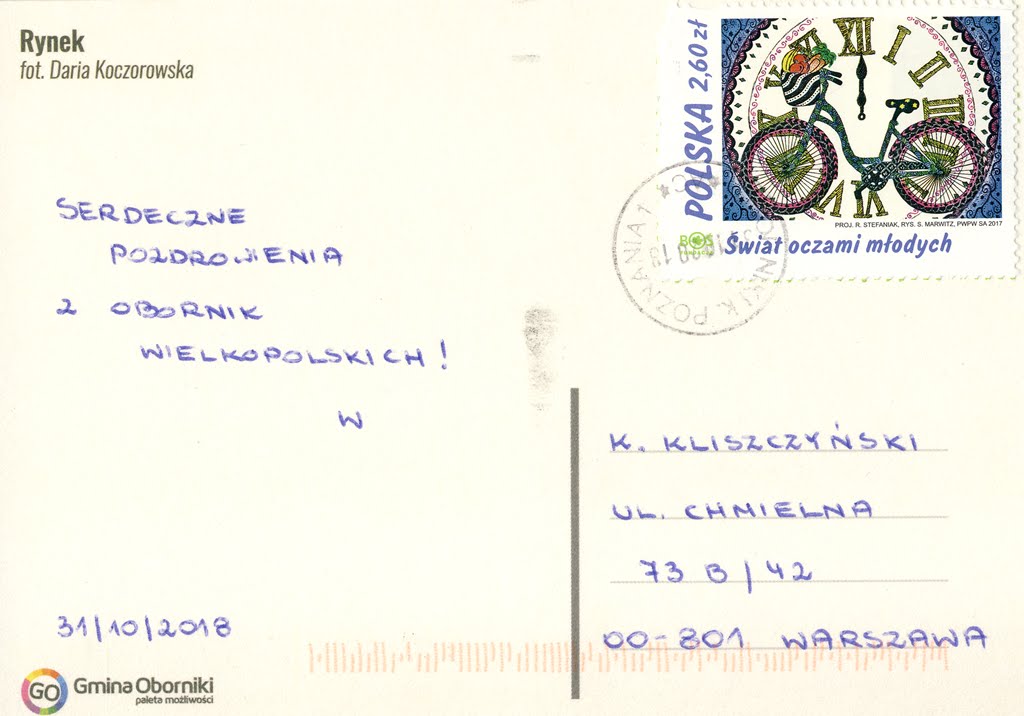 Rynek
fot. Daria Koczorowska
SERDECZNE
POZDROWIENIA
Z OBORNIK
WIELKOPOLSKICH!
W
31/10/2018
GO Gmina Oborniki
paleta możliwości
POLSKA 2,60 zł
XII I II III
VI V
PROJ. R. STEFANIAK, RYS. S. MARWITZ, PWPW SA 2017
BOŚ
Świat oczami młodych
K. POZNANIA 1
K. KLISZCZYŃSKI
UL. CHMIELNA
73 B/42
00-801 WARSZAWA